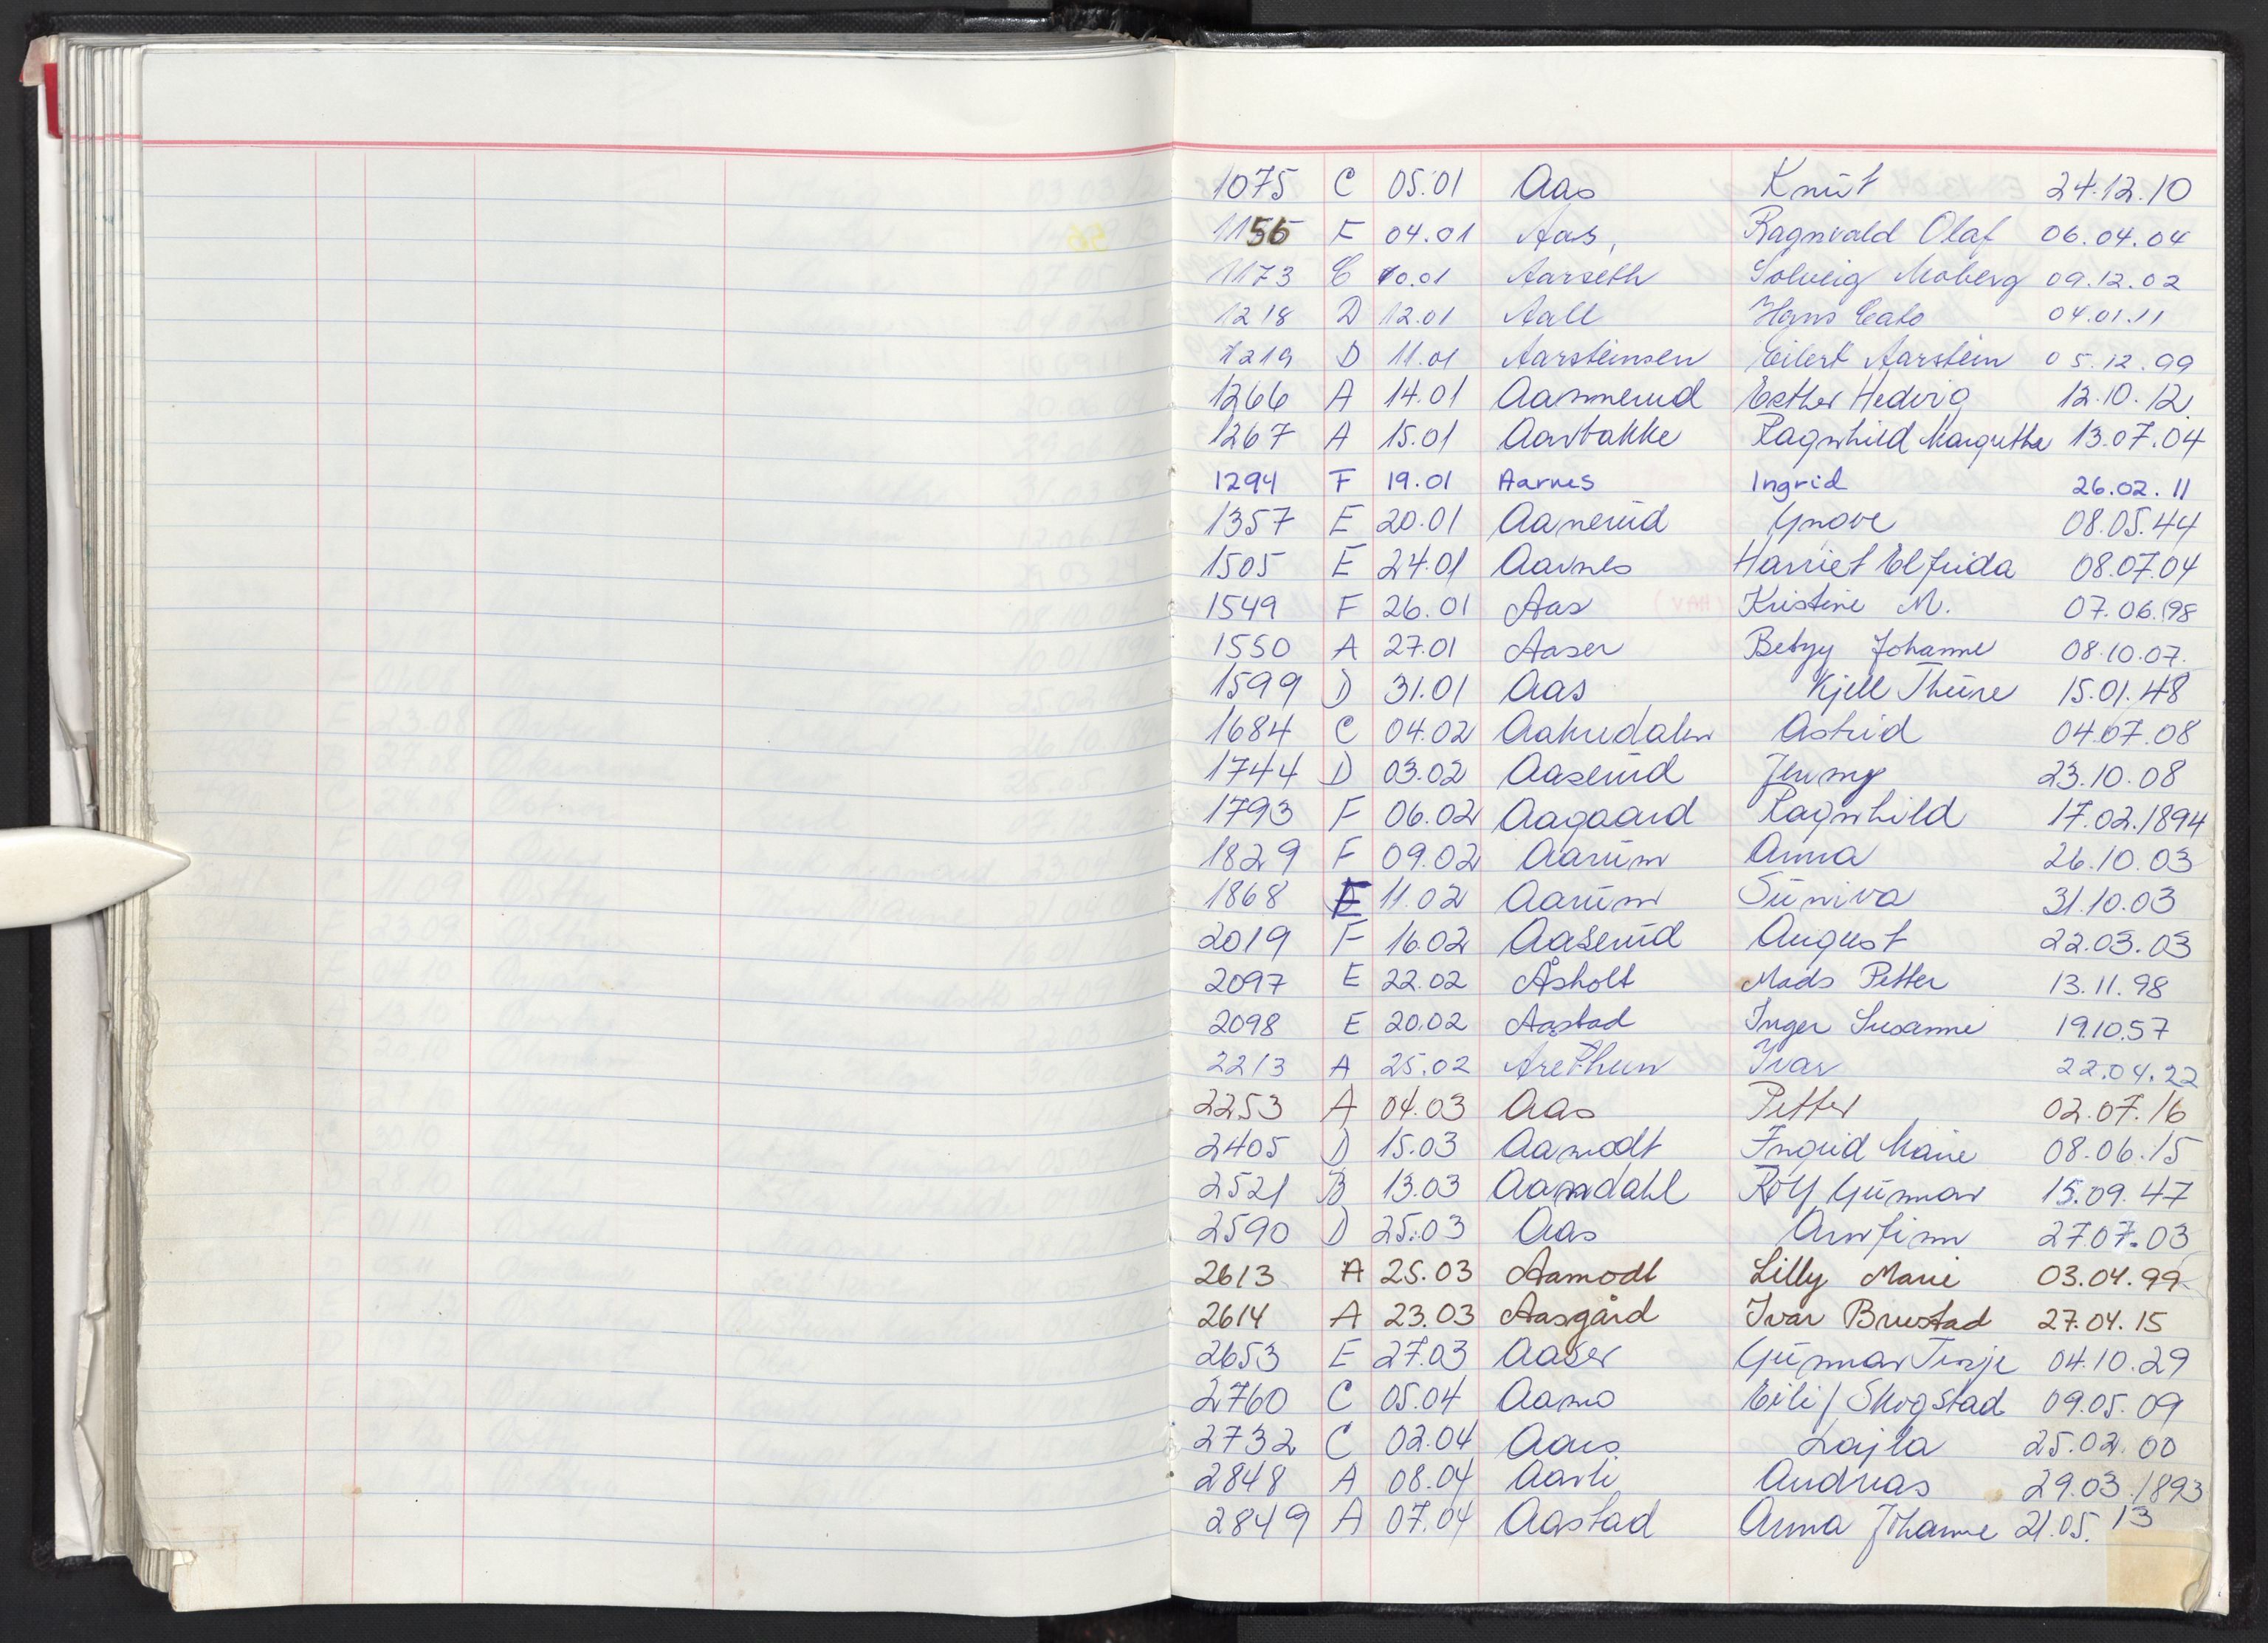 1075 C 05.01 Aas Knut 24.12.10
1156 F 04.01 Aas, Ragnvald Olaf 06.04.04
1173 C 10.01 Aarseth Solveig Moberg 09.12.02
1218 D 12.01 Aall Hans Cato 04.01.11
1219 D 11.01 Aarsteinsen Eilert Aarstein 05.12.99
1266 A 14.01 Aamnerud Esther Hedvig 12.10.12
1267 A 15.01 Aarbakke Ragnhild Margrethe 13.07.04
1294 F 19.01 Aarnes Ingrid 26.02.11
1357 E 20.01 Aanerud Ynove 08.05.44
1505 E 24.01 Aarnes Harriet Elfrida 08.07.04
1549 F 26.01 Aas Kristine M. 07.06.98
1550 A 27.01 Aaser Betzy Johanne 08.10.07.
1599 D 31.01 Aas Kjell Thure 15.01.48
1684 C 04.02 Aakredalen Astrid 04.07.08
1744 D 03.02 Aaserud Jenny 23.10.08
1793 F 06.02 Aagaard Ragnhild 17.02.1894
1829 F 09.02 Aarum Anna 26.10.03
1868 E 11.02 Aarum Suniva 31.10.03
2019 F 16.02 Aaserud August 22.03.03
2097 E 22.02 Åsholt Mads Petter 13.11.98
2098 E 20.02 Aastad Inger Susanne 19.10.57
2213 A 25.02 Arethun Ivar 22.04.22
2253 A 04.03 Aas Petter 02.07.16
2405 D 15.03 Aamodt Ingrid Marie 08.06.15
2521 B 13.03 Aamdahl Rolf Gunnar 15.09.47
2590 D 25.03 Aas Arnfinn 27.07.03
2613 A 25.03 Aamodt Lilly Marie 03.04.99
2614 A 23.03 Aasgård Ivar Brustad 27.04.15
2653 E 27.03 Aaser Gunnar Terje 04.10.29
2760 C 05.04 Aamo Eili / Skogstad 09.05.09
2732 C 02.04 Aars Lajla 25.02.00
2848 A 08.04 Aarli Andreas 29.03.1893
2849 A 07.04 Aastad Anna Johanne 21.05.13